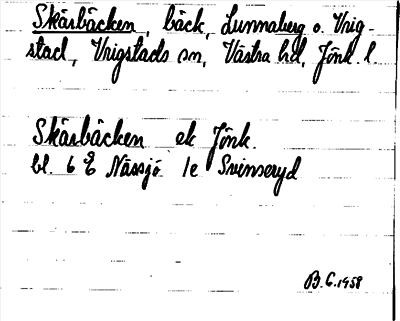 Skärsbäcken, bäck, Lunnaberg o. Vrig-
stad, Vrigstads sn, Västra hd, Jönk. l.
Skärsbäcken ek Jönk.
bl. 6 E Nässjö 1e Svinseryd
B.G. 1958